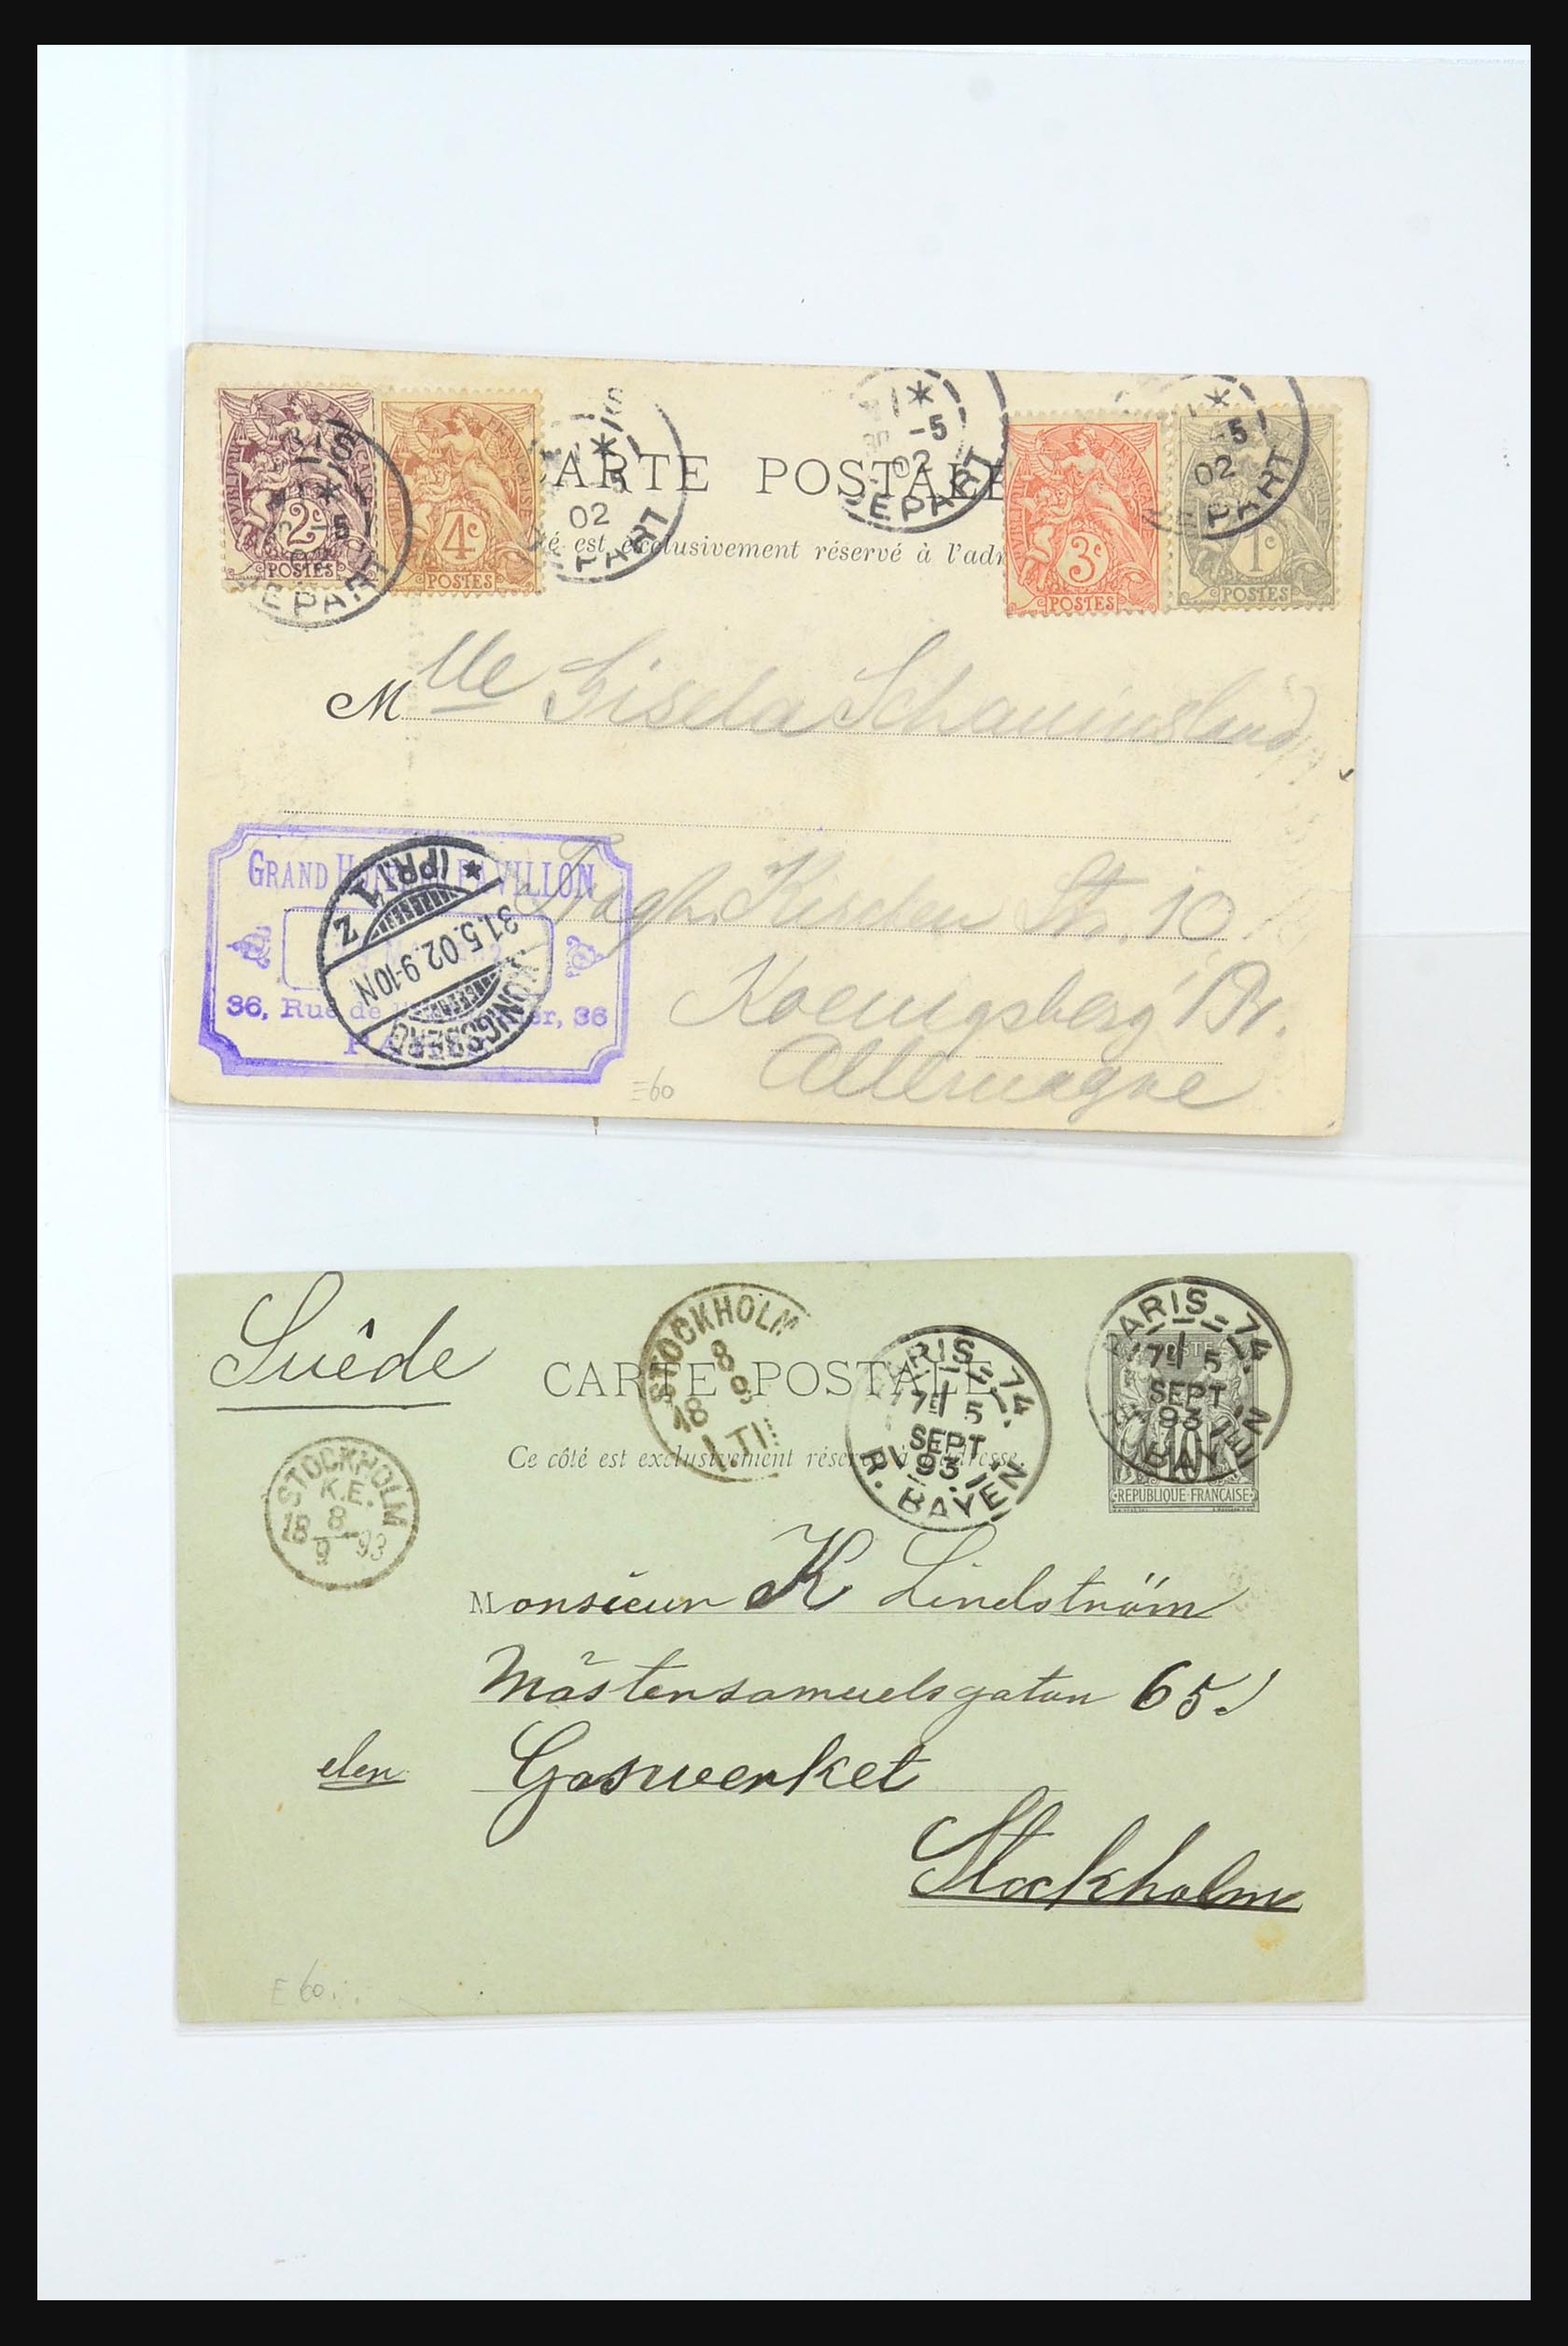 2c POSTES
4c POSTES
3c POSTES
1c POSTES
-5
02
EPART
02
EPART
-5
02
EPART
-5
02
EPART
CARTE POSTALE
é est exclusivement réservé à l'adr
Mlle Gisela Schauinsland
Tragh. Kirchen Str. 10
Koenigsberg Pr.
Allemagne
GRAND HOTEL PAVILLON
36, Rue de er, 36
KÖNIGSBERG (PR.) 1 Z
31.5.02.9-10N
E60
Suède
STOCKHOLM
8
9
18
1 TUR
PARIS-74
7E 5
SEPT
93
R. BAYEN
PARIS-74
7E 5
SEPT
93
R. BAYEN
10
REPUBLIQUE FRANÇAISE
CARTE POSTALE
Ce côté est exclusivement réservé à l'adresse.
STOCKHOLM
K.E.
18 8 93
9
Monsieur K Lindström
Mästersamuelsgatan 65.
eler Gasverket
Stockholm
E60